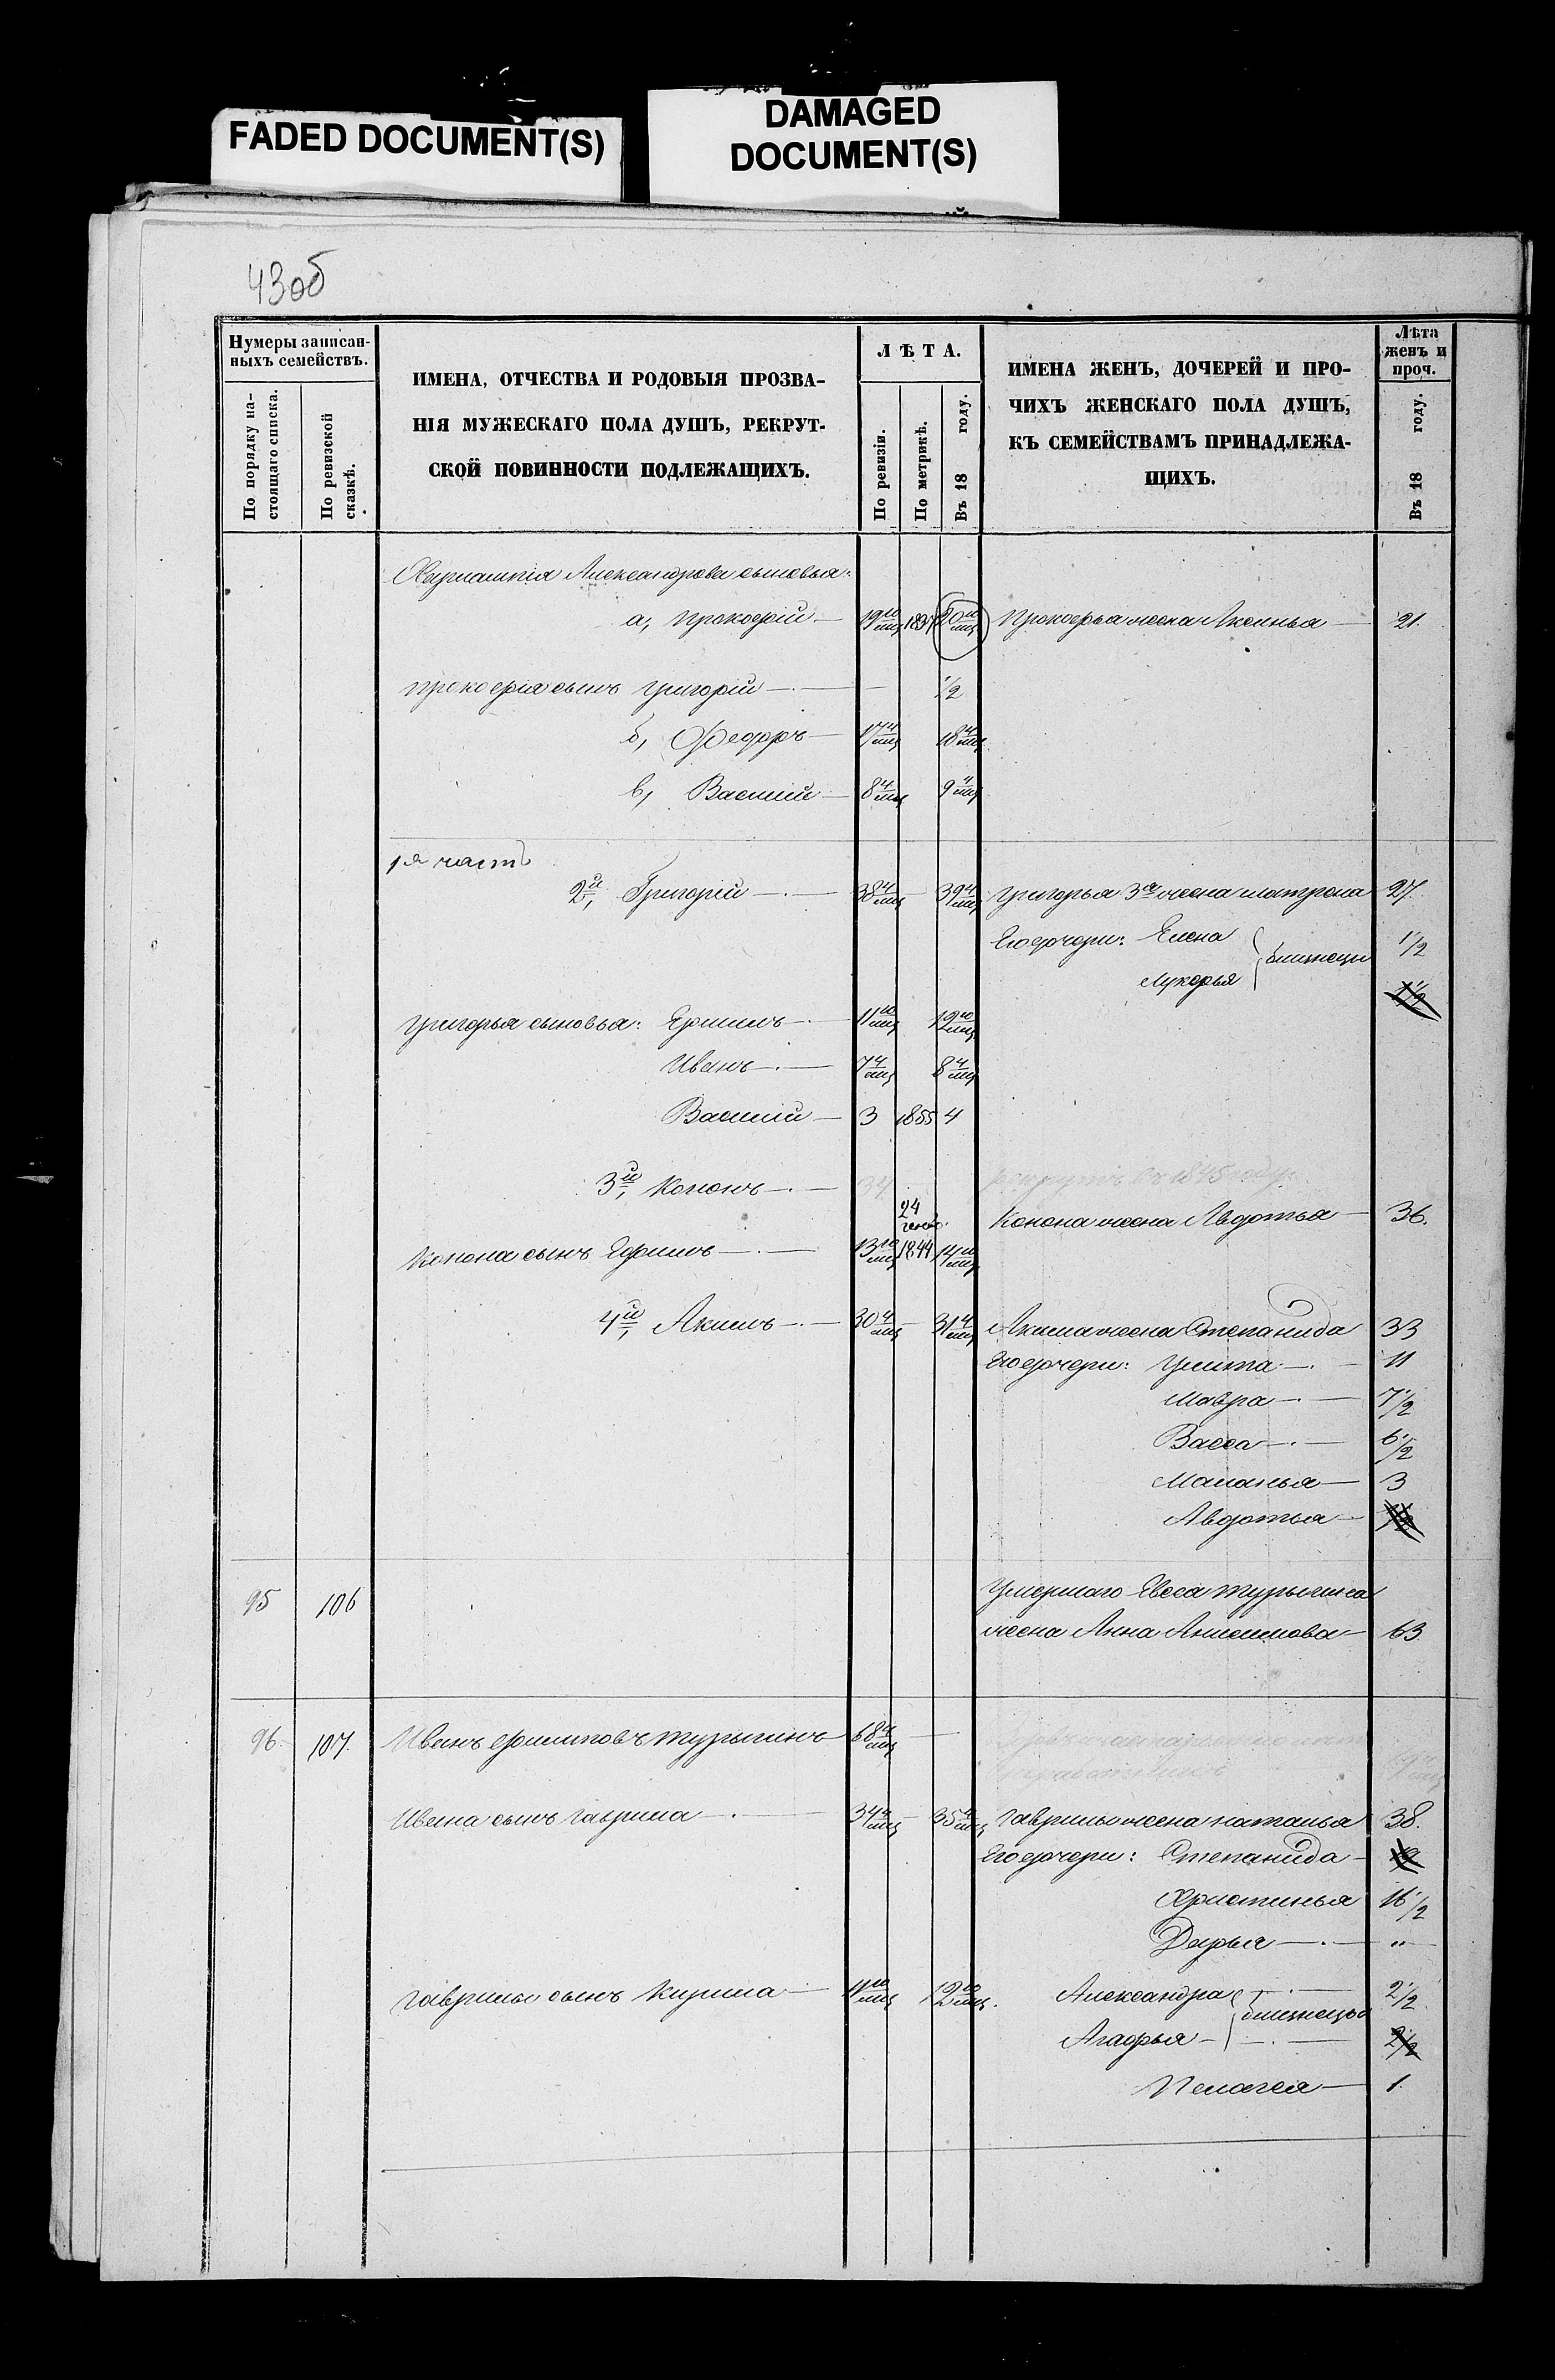 FADED DOCUMENT(S)
DAMAGED
DOCUMENT(S)
43об
Нумеры записан-
ныхъ семействъ.
По порядку на-
стоящаго списка.
По ревизской
сказкѣ.
ИМЕНА, ОТЧЕСТВА И РОДОВЫЯ ПРОЗВА-
НІЯ МУЖЕСКАГО ПОЛА ДУШЪ, РЕКРУТ-
СКОЙ ПОВИННОСТИ ПОДЛЕЖАЩИХЪ.
ЛѢТА.
По ревизіи.
По метрикѣ.
Въ 18 году.
ИМЕНА ЖЕНЪ, ДОЧЕРЕЙ И ПРО-
ЧИХЪ ЖЕНСКАГО ПОЛА ДУШЪ,
КЪ СЕМЕЙСТВАМЪ ПРИНАДЛЕЖА-
ЩИХЪ.
Лѣта
женъ и
проч.
Въ 18 году.
Александрова сыновья:
а, Прокофій 19 10/мц 20 10/мц Прокофья жена Аксинья 21.
Прокофія сынъ Григорій 1/2
б, Федоръ 17 4/мц 18 4/мц
в, Василій 8 4/мц 9 4/мц
1я часть
2й, Григорій 38 4/мц 39 4/мц Григорья 3я жена Матрона 27
Его дочери: Елена 1 1/2
близнецы
Лукерья 1 1/2
Григорья сыновья: 11 10/мц 12 10/мц
Иванъ 7 4/мц 8 4/мц
Василій 3 1855 4
3й, Кононъ 34 рекрутъ въ 1845 году.
Конона жена Авдотья 36.
24
Конона сынъ Ефимъ 13 10/мц 1844 14 10/мц
4й, Акимъ 30 4/мц 31 4/мц Акима жена Степанида 33
Его дочери: Улита 11
Мавра 7 1/2
Васса 6 1/2
Маланья 3
Авдотья
95 106 Умершаго Евсея Турыгина
жена Анна Анисимова 63
96. 107. Иванъ Филиповъ Турыгинъ 68 4/мц
Ивана сынъ Гаврила 34 4/мц 35 4/мц Гаврилы жена Наталья 38.
Его дочери: Степанида
Христинья 16 1/2
Дарья "
Гаврилы сынъ Кирила 11 10/мц 12 10/мц. Александра 2 1/2
близнецы
Агафья 2 1/2
Пелагея 1.